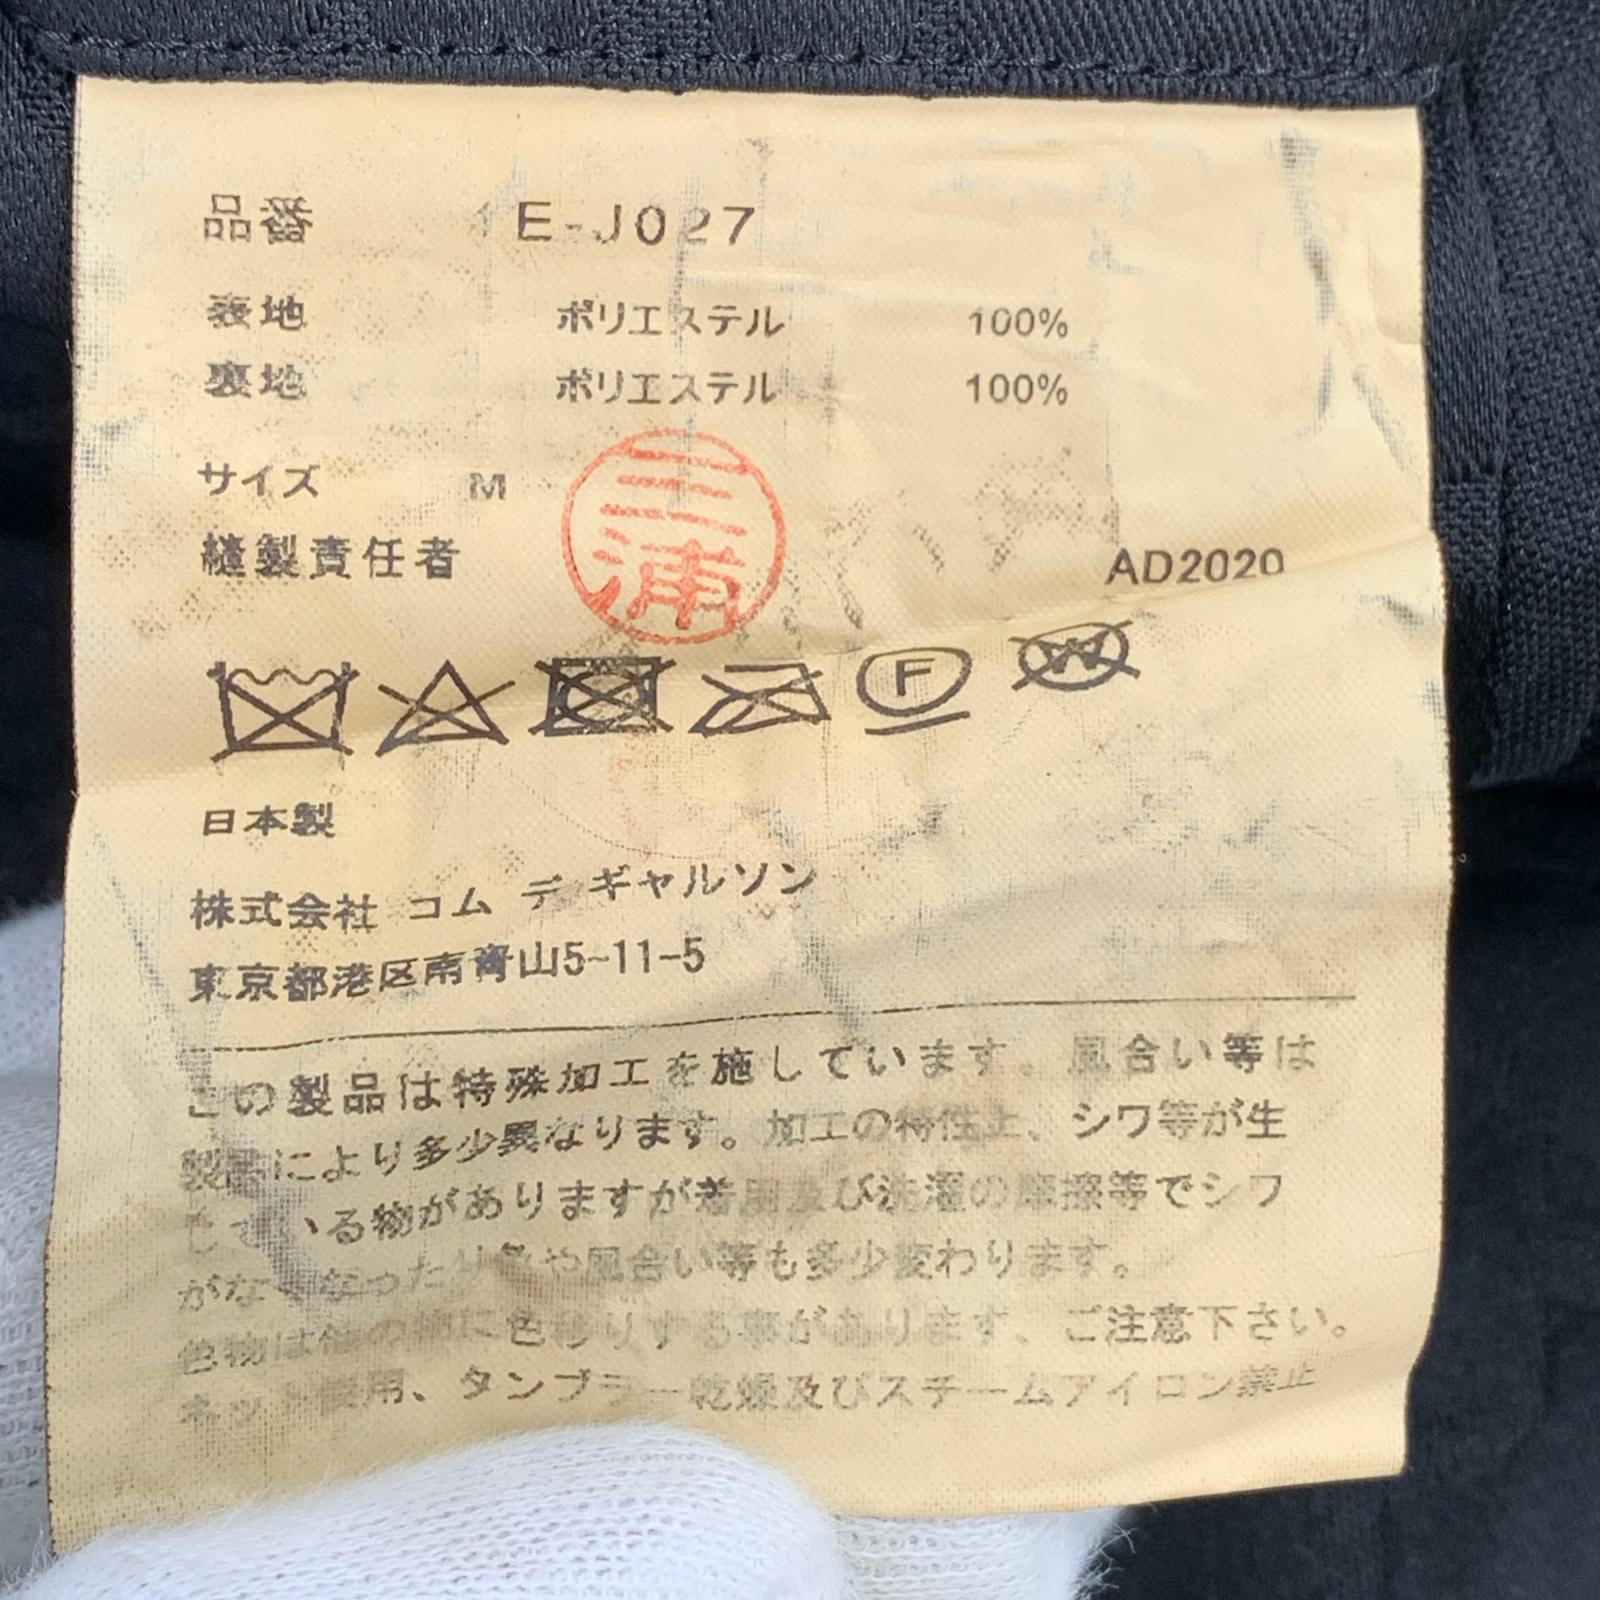 品番 1E-J027
表地 ポリエステル 100%
裏地 ポリエステル 100%
サイズ M
縫製責任者 三浦 AD2020
F W
日本製
株式会社 コム デ ギャルソン
東京都港区南青山5-11-5
この製品は特殊加工を施しています。風合い等は
製品により多少異なります。加工の特性上、シワ等が生
じている物がありますが着用及び洗濯の摩擦等でシワ
がなくなったり色や風合い等も多少変わります。
色物は他の物に色移りする事があります、ご注意下さい。
ネット使用、タンブラー乾燥及びスチームアイロン禁止